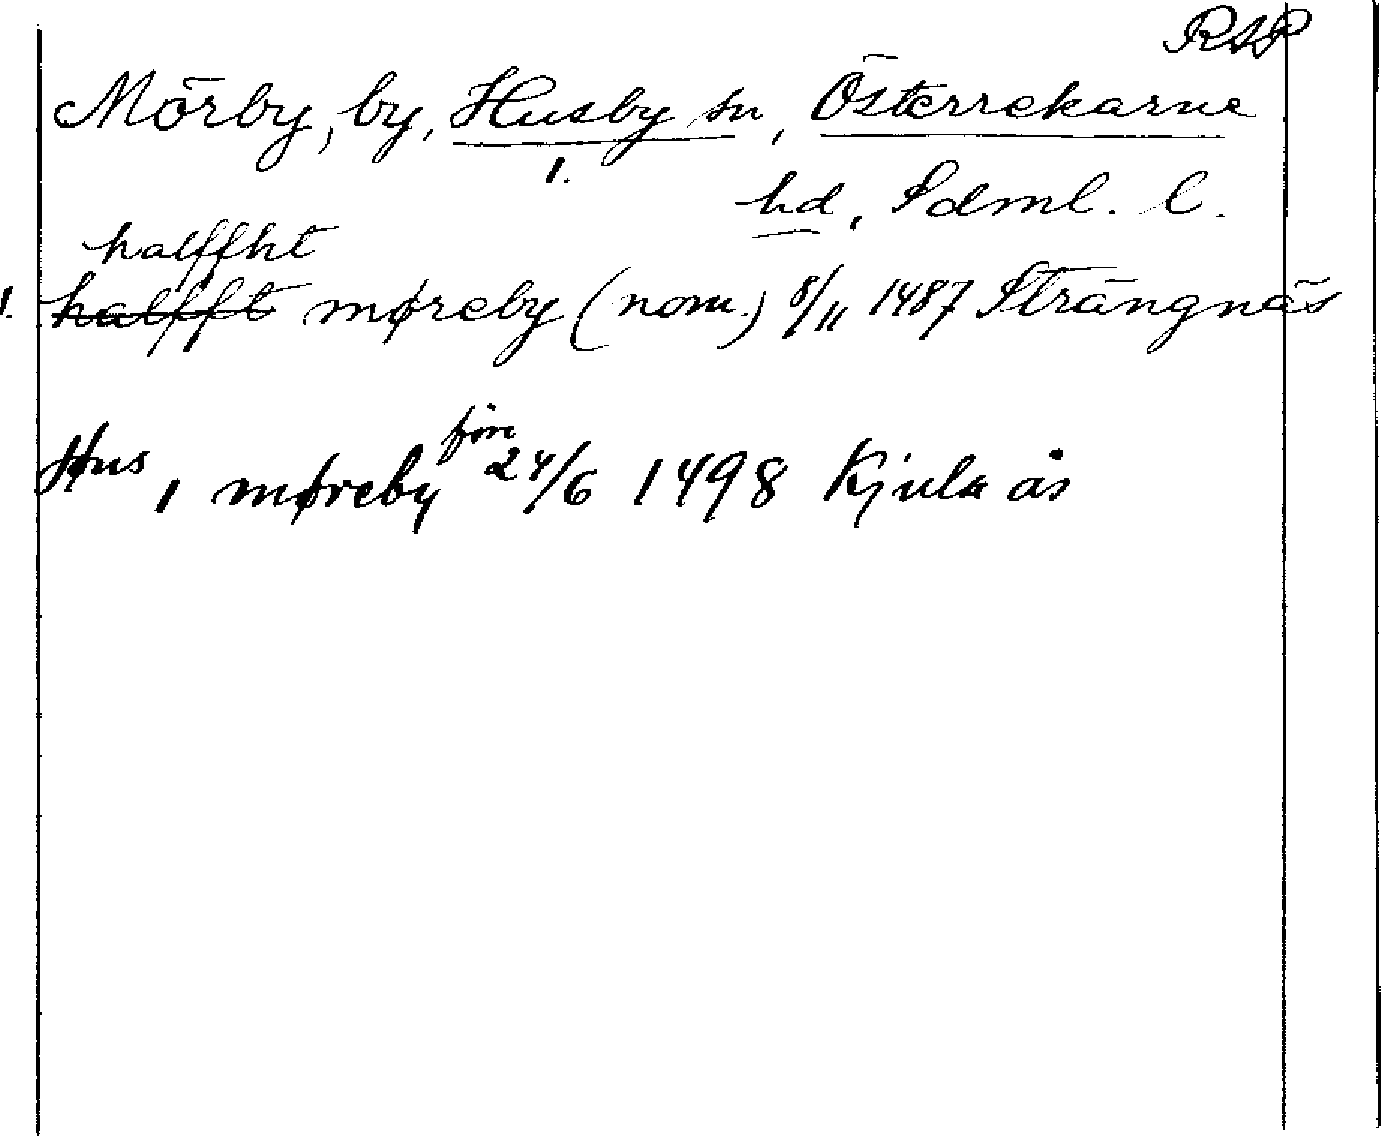 RAP
Mörby, by, Husby sn, Österrekarne
1.
hd, Sdml. l.
halffht
1. halfft møreby (nom.) 8/11 1487 Strängnäs
före
Hus, i møreby 24/6 1498 Kjula ås